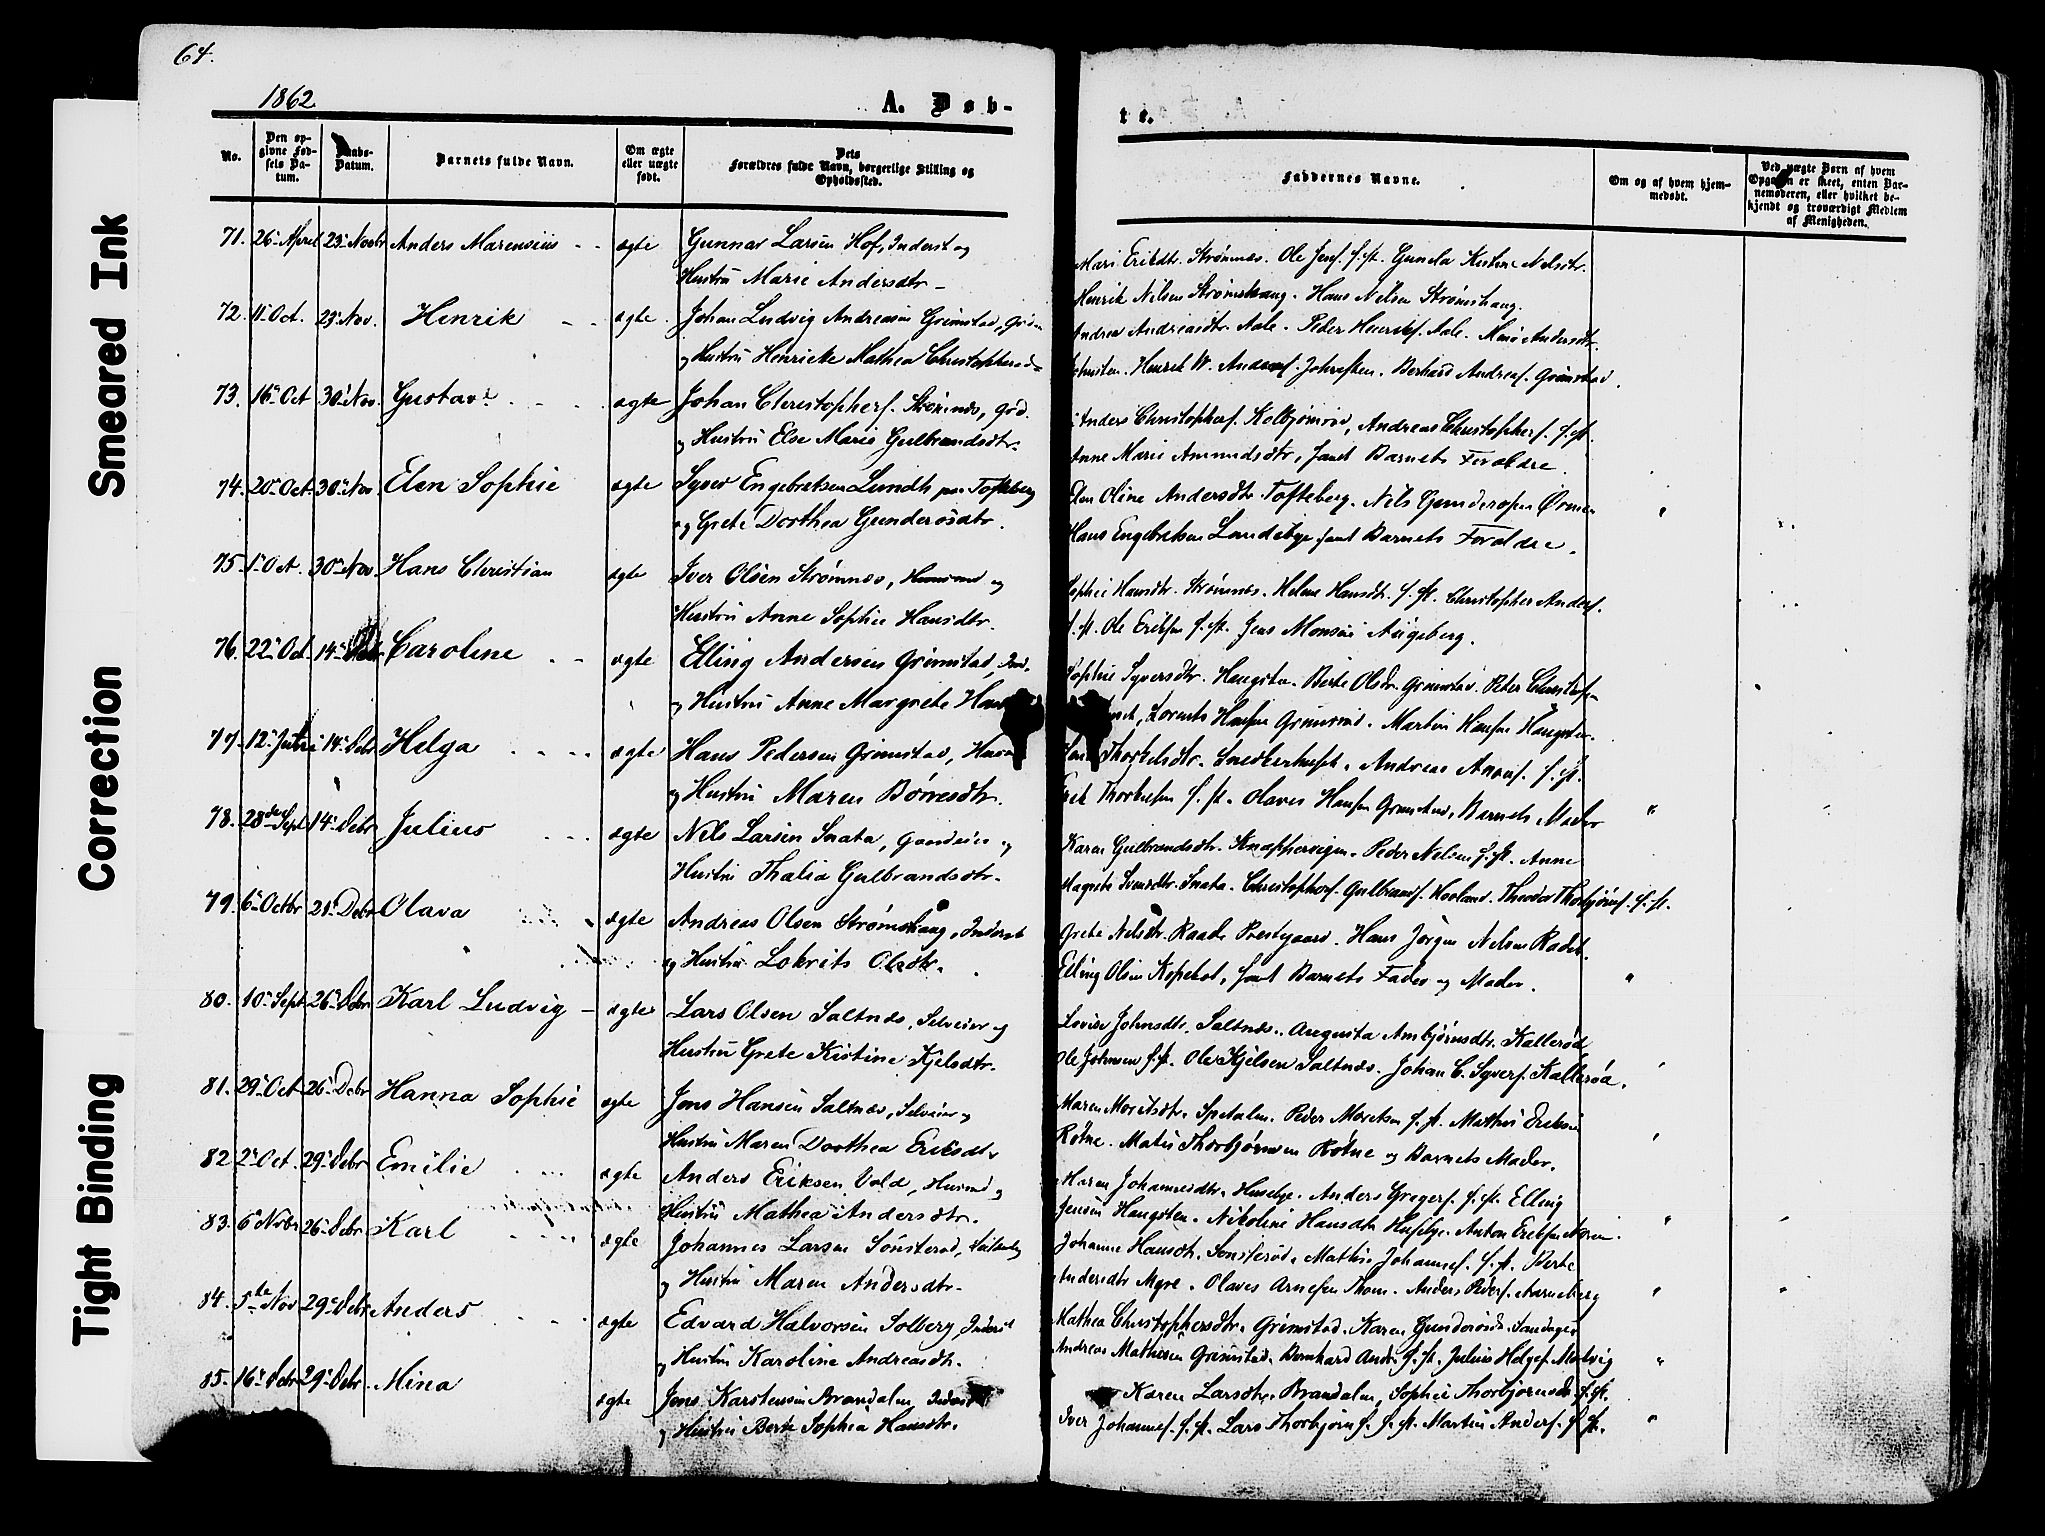 64.
1862
A. Døb-
te.
No.
Den op-
givne Fød-
sels Da-
tum.
Daabs-
Datum.
Barnets fulde Navn.
Om ægte
eller uægte
født.
Dets
Forældres fulde Navn, borgerlige Stilling og
Opholdssted.
Faddernes Navne.
Om og af hvem hjem-
medøbt.
Ved uægte Børn af hvem
Opgaven er skeet, enten Bar-
nemoderen, eller hvilket be-
kjendt og troværdigt Medlem
af Menigheden.
71. 26 April 23 Novbr Anders Marensius ægte Gunnar Larsen Hof, Inderst og
Hustru Marie Andersdtr
Mari Eriksdtr. Strømnes. Ole Jens. s. st. Gunela Kistine Nelsdtr.
Henrik Nilsen Strømshaug. Hans Nilsen Strømshaug.
72. 11 Oct. 23 Nov. Henrik ægte Johan Ludvig Andreasen Grimstad,
og Hustru Henrikke Mathea Christophersd
Andrea Andreasdtr. Aale. Peder Henriks. Aale. Mari Andersdtr.
Henrik W. Anders. Berhard Andreas. Grimstad.
73. 16 Oct 30 Nov. Gustav ægte Johan Christophers. Strømnes, Grd.
og Hustru Else Marie Gulbrandsdtr.
Anders Christophers. Kolbjørnrød, Andreas Christophers. s. st.
Anne Marie Amundsdtr, samt Barnets Forældre.
74. 20 Oct. 30 Nov. Elen Sophie ægte Syver Engebretsen Lundeb paa Tofteberg
og Grete Dorthea Gundersdtr.
Elen Oline Andersdtr. Tofteberg. Nils Gundersen Ørmen
Hans Engebretsen Lundebye, samt Barnets Forældre.
75. 1 Oct. 30 Nov. Hans Christian ægte Iver Olsen Strømnes, Husmand og
Hustru Anne Sophie Hansdtr.
Sophie Hansdtr. Strømnes. Helene Hansdtr. s. st. Christopher Anders.
s. st. Ole Eriksen s. st. Jens Monsen Augeberg.
76. 22 Oct 14 Debr Caroline ægte Elling Andersen Grimstad, Ind.
og Hustru Anne Margrete
Sophie Syversdtr. Haugsten. Berte Olsdr. Grimstad. Peter
Lorents Hansen Grimsrød. Martin Hansen Haugsten.
77. 12 Juli 14 Debr Helga ægte Hans Pedersen Grimstad,
og Hustru Maren Børresdtr.
Thorkelsdtr. Andreas s. st.
Thorkelsen s. st. Olaves Hansen Grimstad, Barnets Moder "
78. 28de Sept 14 Debr Julius ægte Nils Larsen Snata, Gaardeier og
Hustru Thalia Gulbrandsdtr.
Karen Gulbrandsdtr. Knappervigen. Peder Nelsen s. st. Anne
Magrete Svensdtr. Snata. Christophers. Gulbrands. Theodor Thorbjørns. s. st.
79. 6 Octbr 21 Debr Olava ægte Andreas Olsen Strømshaug, Inderst
og Hustru Lokrits Olsdtr.
Grete Nelsdtr. Raade Prestgaard. Hans Jørgen Nelsen Rødst.
Elling Olsen Kopehol, samt Barnets Fader og Moder. "
80. 10 Sept 26 Debr Karl Ludvig ægte Lars Olsen Saltnes, Selveier og
Hustru Grete Kistine Kjelsdtr.
Lovise Johnsdtr. Saltnes. Augusta Ambjørnsdtr. Kallerød
Ole Johnsen s. st. Ole Kjelsen Saltnes. Johan C. Syvers. Kallerød.
81. 29 Oct 26 Debr Hanna Sophie ægte Jens Hansen Saltnes, Selveier og
Hustru Maren Dorthea Eriksdtr
Maren Moritsdtr. Spetalen. Peder Moretsen s. st. Mathis Eriksen
Røtne. Matis Thorbjørnsen Røtne og Barnets Moder.
82. 2 Oct. 29 Debr Emilie ægte Anders Eriksen Vold, Husmd og
Hustru Mathea Andersdtr.
Maren Johannesdtr. Husebye. Anders Gregers. s. st. Elling
Jensen Haugsten. Nikoline Hansdtr Husebye. Anton Eriksen "
83. 6 Novbr 26 Debr Karl ægte Johannes Larsen Sønsterød,
og Hustru Maren Andersdtr.
Johanne Hansdtr. Sønsterød. Mathis Johannes. s. st. Berte
Andersdtr Myre. Olaves Arnesen Thom. Anders Peders. Aarneberg "
84. 5te Nov 29 Debr Anders ægte Edvard Halvorsen Solberg, Inderst
og Hustru Karoline Andreasdtr.
Mathea Christophersdtr. Grimstad. Karen
Andreas Mathisen Grimstad. Bernhard Andr. s. st. Julius Helges. "
85. 16 Debr 29 Debr Mina ægte Jens Karstensen Brandalen, Inderst
og Hustru Berte Sophia Hansdtr.
Karen Larsdtr. Brandalen, Sophie Thorbjørnsdr s. st.
Iver Johannes. s. st. Lars Thorbjørns. s. st. Martin Anders. s. st. "
Tight Binding
Correction
Smeared Ink